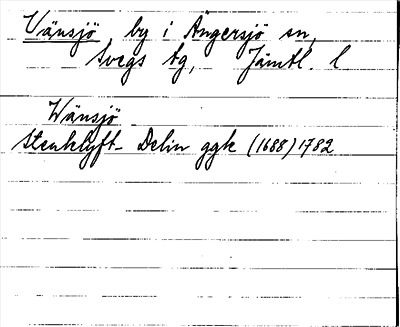 Vänsjö by i Ängersjö sn,
Svegs tg, Jämtl. l
Wänsjö
Stenklyft- Delin ggk (1688) 1782